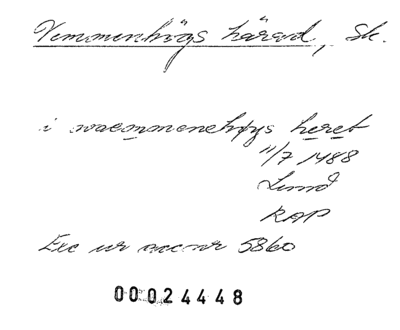 Vemmenhögs härad, Sk.
i waemmenehøgs heret
11/7 1488
Lund
RAP
Exc ur acc nr 5860
00024448